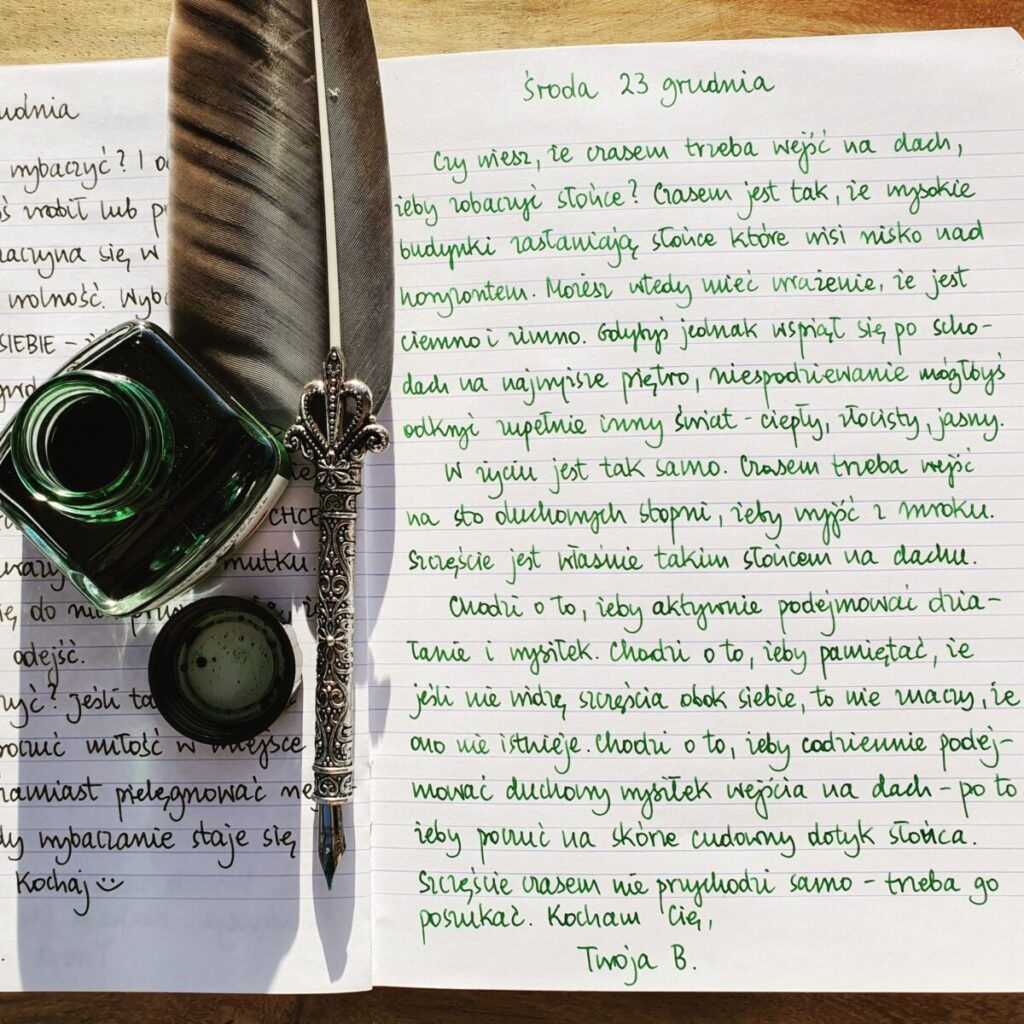 udnia
wybaczyć? I
ś zrobił lub
zaczyna się w
wolność.
SIEBIE –
CHCE
mutku.
ię do
odejść.
Jeśli
miłość w miejsce
zamiast pielęgnować
dy wybaczanie staje się
Kochaj
Środa 23 grudnia
Czy wiesz, że czasem trzeba wejść na dach,
żeby zobaczyć słońce? Czasem jest tak, że wysokie
budynki zasłaniają słońce które wisi nisko nad
horyzontem. Możesz wtedy mieć wrażenie, że jest
ciemno i zimno. Gdybyś jednak wspiął się po scho-
dach na najwyższe piętro, niespodziewanie mógłbyś
odkryć zupełnie inny świat – ciepły, złocisty, jasny.
W życiu jest tak samo. Czasem trzeba wejść
na sto duchowych stopni, żeby wyjść z mroku.
Szczęście jest właśnie takim słońcem na dachu.
Chodzi o to, żeby aktywnie podejmować dzia-
łanie i wysiłek. Chodzi o to, żeby pamiętać, że
jeśli nie widzę szczęścia obok siebie, to nie znaczy, że
ono nie istnieje. Chodzi o to, żeby codziennie podej-
mować duchowy wysiłek wejścia na dach – po to
żeby poczuć na skórze cudowny dotyk słońca.
Szczęście czasem nie przychodzi samo – trzeba go
poszukać. Kocham Cię,
Twoja B.